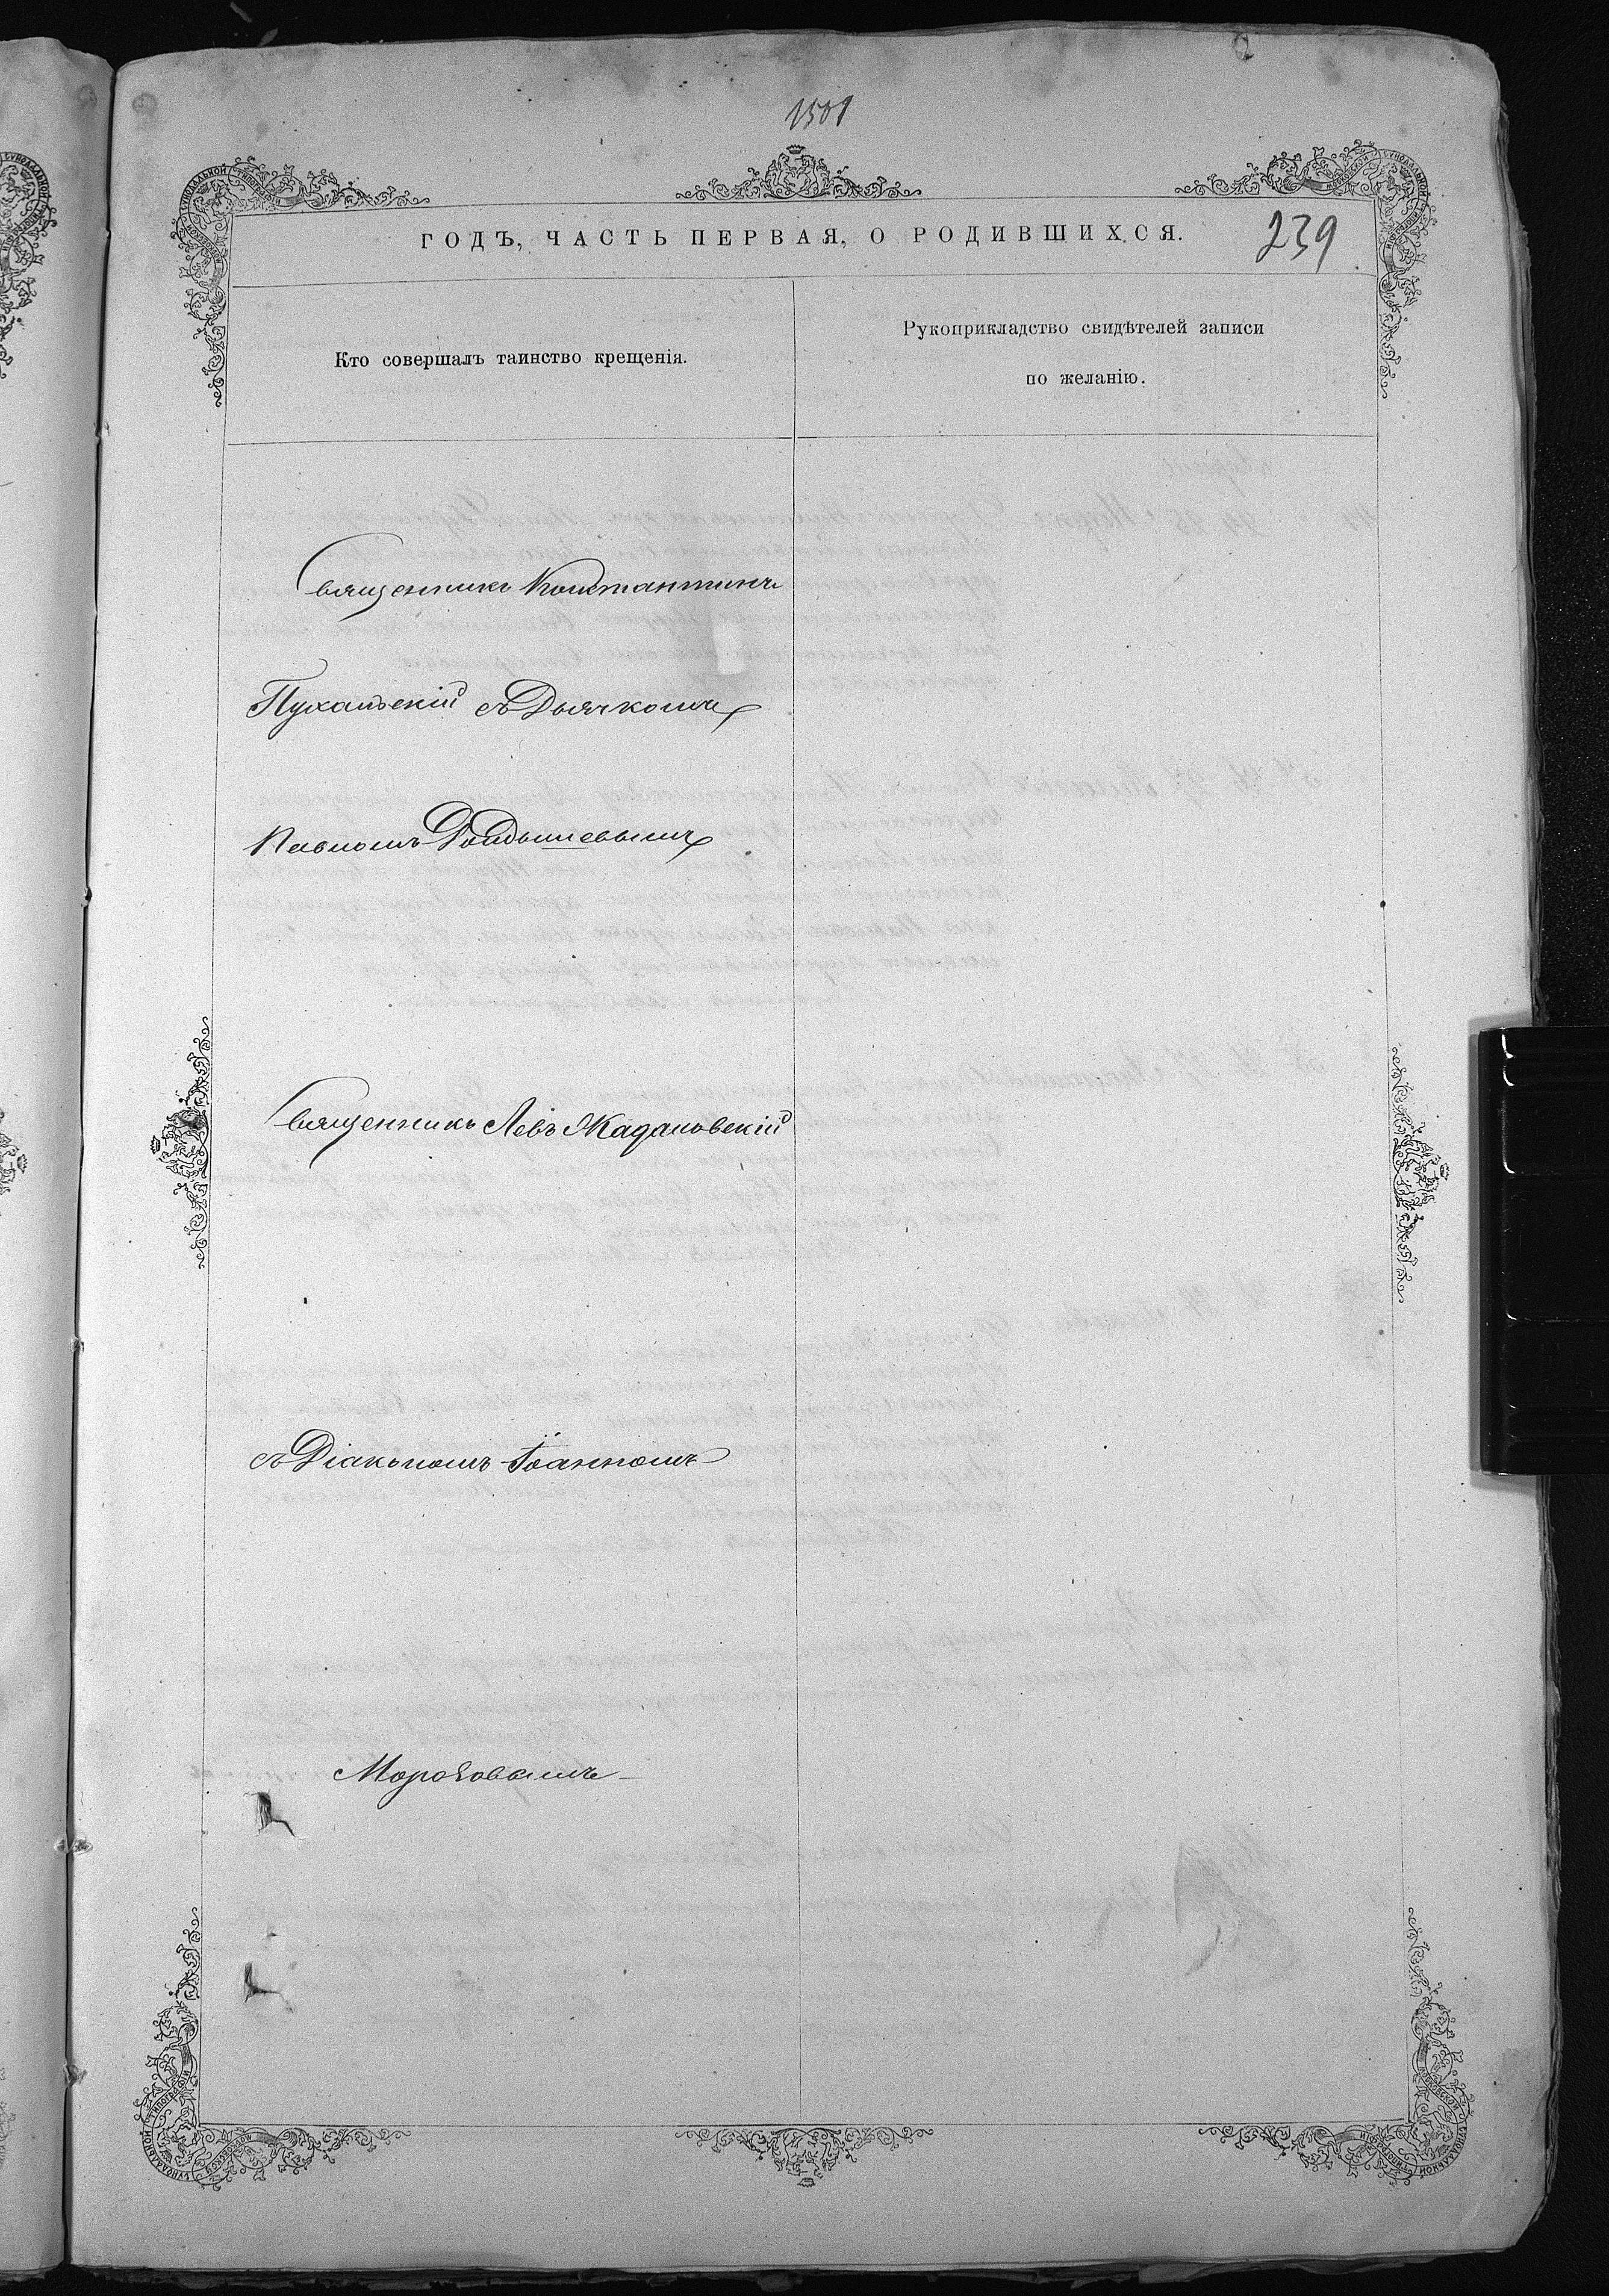 1501
ГОДЪ, ЧАСТЬ ПЕРВАЯ, О РОДИВШИХСЯ.
239
Кто совершалъ таинство крещенія.
Рукоприкладство свидѣтелей записи
по желанію.
Священникъ Константинъ
съ Дьячкомъ
Павломъ
Священникъ Левъ Жадановскій
съ Діакономъ Іоанномъ
Мороховымъ